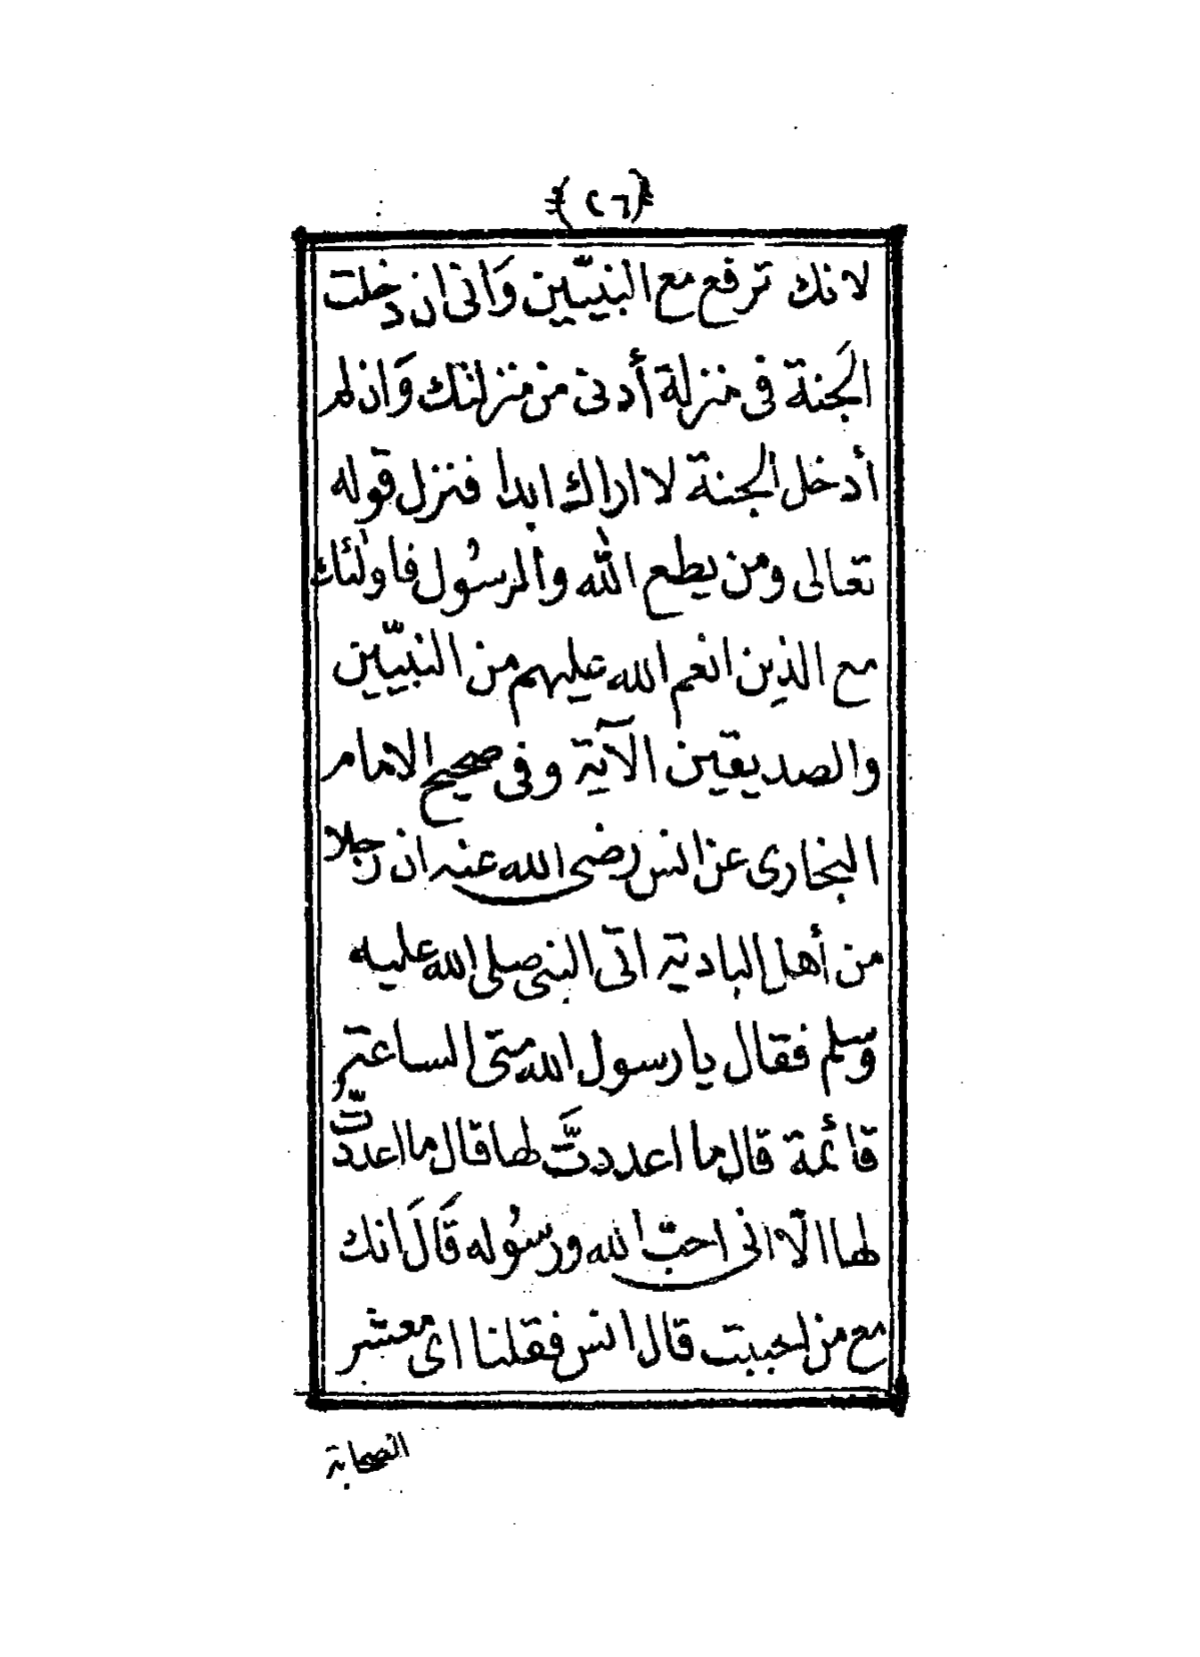 (٢٦)
لانك ترفع مع النبيّين وَانى ان دخلت
الجَنة فى منزلة أدنى من منزلتك وَان لم
أدخل الجنة لا اراك ابدا فنزل قوله
تعالى ومن يطع الله والرسُول فاولٰئك
مع الذين انعم الله عليهم من النبيّين
والصديقين الآية وفى صحيح الامام
البخارى عن انس رضى الله عنه ان رجلا
من أهل البادية اتى النبى صلى الله عليه
وسلم فقال يا رسول الله متى الساعة
قائمة قال ما اعددتَّ لها قال ما اعددتّ
لها الّا انى احبّ الله ورسُوله قَالَ انك
مع من احببت قال انس فقلنا اى معشر
الصحابة